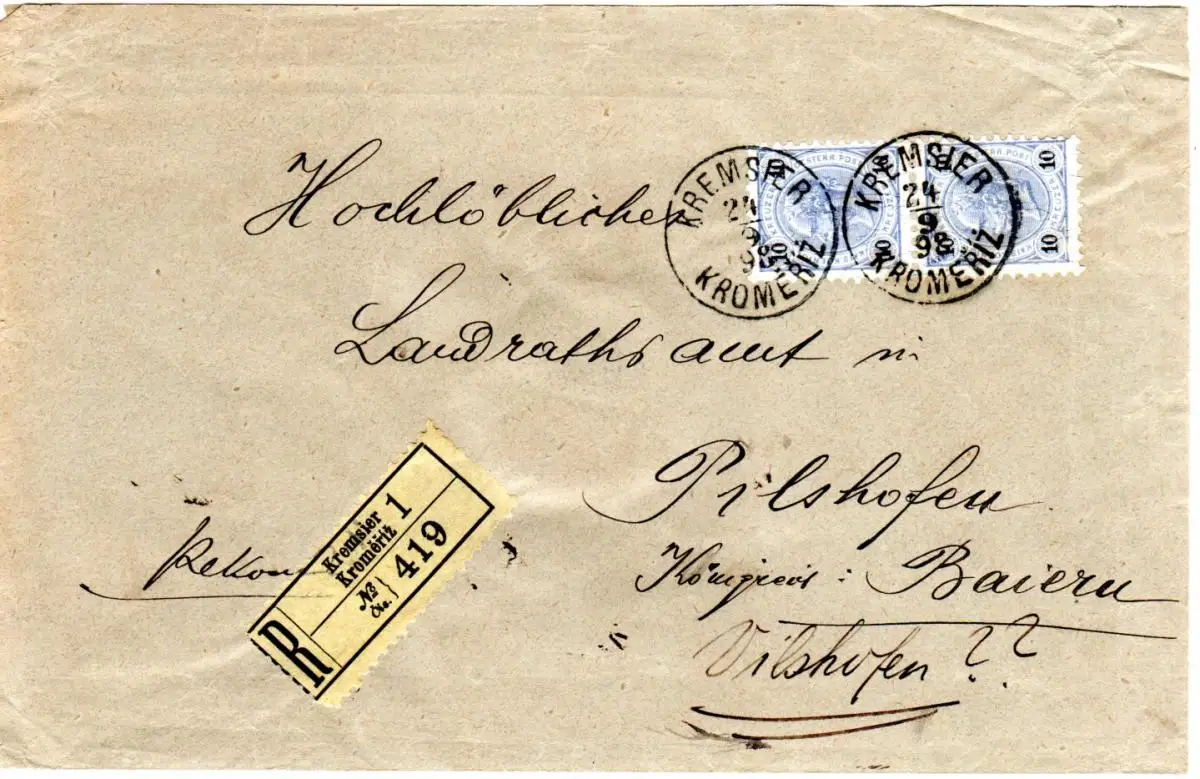 Hochlöbliches
KREMSIER
24
9
98
KROMĚŘÍŽ
KREMSIER
24
9
98
KROMĚŘÍŽ
10
10
10
10
Landrathsamt in
Pilshofen
Königreich: Baiern
Vilshofen??
Rekom
Kremsier
Kroměříž 1
No
Čis. 419
R